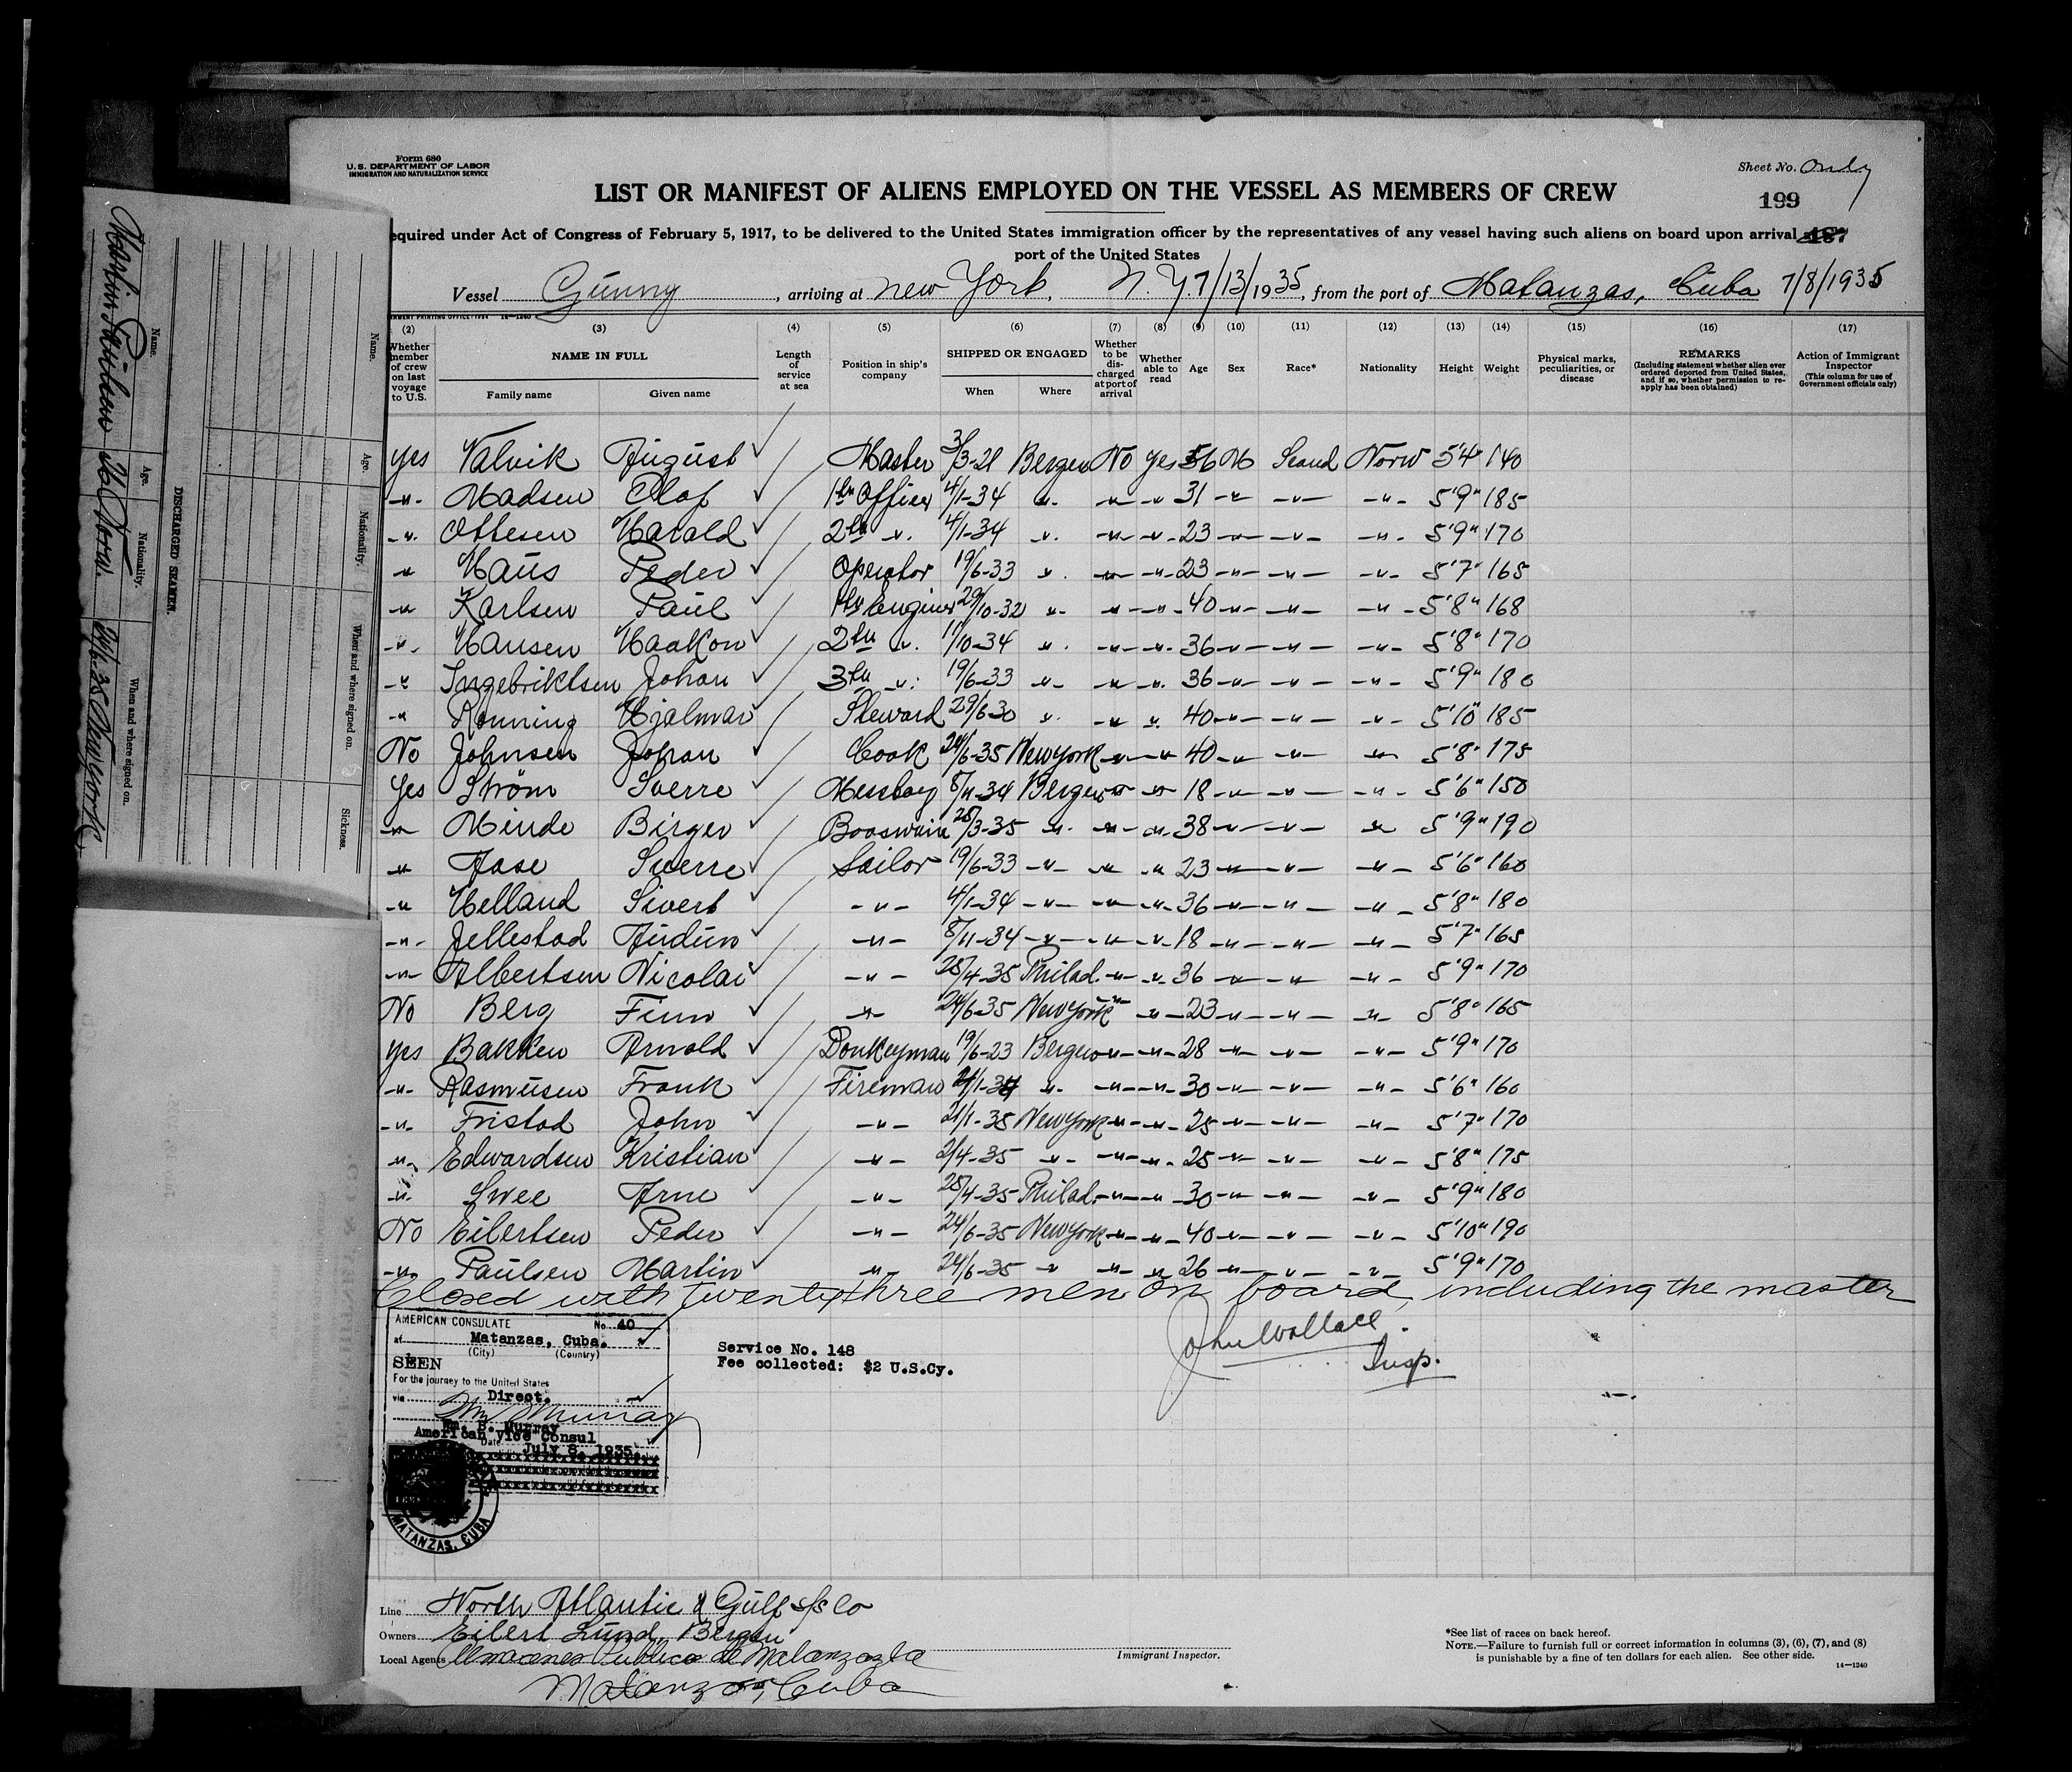 Form 680
U. S. DEPARTMENT OF LABOR
IMMIGRATION AND NATURALIZATION SERVICE
Sheet No. Only
LIST OR MANIFEST OF ALIENS EMPLOYED ON THE VESSEL AS MEMBERS OF CREW
199
equired under Act of Congress of February 5, 1917, to be delivered to the United States immigration officer by the representatives of any vessel having such aliens on board upon arrival
port of the United States
Vessel Gunny, arriving at New York, N.Y. 7/13/1935, from the port of Matanzas, Cuba 7/8/1935
(2) (3) (4) (5) (6) (7) (8) (9) (10) (11) (12) (13) (14) (15) (16) (17)
Whether member of crew on last voyage to U.S. NAME IN FULL Family name Given name Length of service at sea Position in ship's company SHIPPED OR ENGAGED When Where Whether to be discharged at port of arrival Whether able to read Age Sex Race* Nationality Height Weight Physical marks, peculiarities, or disease REMARKS (Including statement whether alien ever ordered deported from United States, and if so, whether permission to reapply has been obtained) Action of Immigrant Inspector (This column for use of Government officials only)
Yes Valvik August Master 3/3-21 Bergen No Yes 56 M Scand Norw 5'4" 140
-"- Madsen Olaf 1st Officer 4/1-34 " -"- -"- 31 -"- -"- -"- 5'9" 185
-"- Ottesen Harald 2nd " 4/1-34 " -"- -"- 23 -"- -"- -"- 5'9" 170
-"- Haus Peder Operator 19/6-33 " -"- -"- 23 -"- -"- -"- 5'7" 165
-"- Karlsen Paul Engineer 29/10-32 " -"- -"- 40 -"- -"- -"- 5'8" 168
-"- Hansen Haakon 2nd " 11/10-34 " -"- -"- 36 -"- -"- -"- 5'8" 170
-"- Ingebriktsen Johan 3rd " 19/6-33 " -"- -"- 36 -"- -"- -"- 5'9" 180
-"- Rönning Hjalmar Steward 29/6-30 " -"- -"- 40 -"- -"- -"- 5'10" 185
No Johnsen Johan Cook 24/6-35 New York -"- -"- 40 -"- -"- -"- 5'8" 175
Yes Strøm Sverre Messboy 8/11-34 Bergen -"- -"- 18 -"- -"- -"- 5'6" 150
-"- Minde Birger Booswain 28/3-35 -"- -"- -"- 38 -"- -"- -"- 5'9" 190
-"- Aase Sverre Sailor 19/6-33 -"- -"- -"- 23 -"- -"- -"- 5'6" 160
-"- Helland Sivert -"- 4/1-34 -"- -"- -"- 36 -"- -"- -"- 5'8" 180
-"- Jellestad Audun -"- 8/11-34 -"- -"- -"- 18 -"- -"- -"- 5'7" 165
-"- Albertsen Nicolai -"- 25/4-35 Philad. -"- -"- 36 -"- -"- -"- 5'9" 170
No Berg Finn -"- 24/6-35 New York -"- -"- 23 -"- -"- -"- 5'8" 165
Yes Bakken Arnold Donkeyman 19/6-23 Bergen -"- -"- 28 -"- -"- -"- 5'9" 170
-"- Rasmusen Frank Fireman 21/1-34 " -"- -"- 30 -"- -"- -"- 5'6" 160
-"- Fristad John -"- 21/1-35 New York -"- -"- 25 -"- -"- -"- 5'7" 170
-"- Edwardsen Kristian -"- 2/4-35 -"- -"- -"- 25 -"- -"- -"- 5'8" 175
-"- Arne -"- 25/4-35 Philad. -"- -"- 30 -"- -"- -"- 5'9" 180
No Eilertsen Peder -"- 24/6-35 New York -"- -"- 40 -"- -"- -"- 5'10" 190
-"- Paulsen Martin -"- 24/6-35 -"- -"- -"- 26 -"- -"- -"- 5'9" 170
Closed with twenty three men on board, including the master
John Wallace
Insp.
AMERICAN CONSULATE No. 40
at Matanzas, Cuba.
(City) (Country)
SEEN
For the journey to the United States
via Direct.
Wm B Murray
Wm. B. Murray
American Vice Consul
Date July 8, 1935.
MATANZAS, CUBA
Service No. 148
Fee collected: $2 U.S.Cy.
Line North Atlantic & Gulf S/S Co
Owners Eilert Lund, Bergen
Local Agents Almacenes Publico de Matanzas
Matanzas, Cuba
Immigrant Inspector.
*See list of races on back hereof.
NOTE.—Failure to furnish full or correct information in columns (3), (6), (7), and (8)
is punishable by a fine of ten dollars for each alien. See other side.
14—1240
DISCHARGED SEAMEN.
Name. Age. Nationality. When and where signed on. Sickness.
Name. Age. Nationality. When and where signed on.
Martin Paulsen 26 Norw. 24/6-35 New York